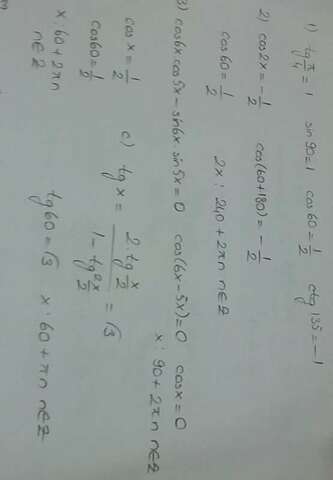 1) tg π/4 = 1 sin90=1 cos60=1/2 ctg135=-1
2) cos2x=-1/2 cos(60+180)=-1/2
cos60=1/2 2x: 240+2πn n∈Z
3) cos6x cos5x-sin6x·sin5x=0 cos(6x-5x)=0 cosx=0
x: 90+2πn n∈Z
cosx=1/2 c) tgx = 2·tg x/2 / 1-tg²x/2 = √3
cos60=1/2
x: 60+2πn tg60=√3 x: 60+πn n∈Z
n∈Z